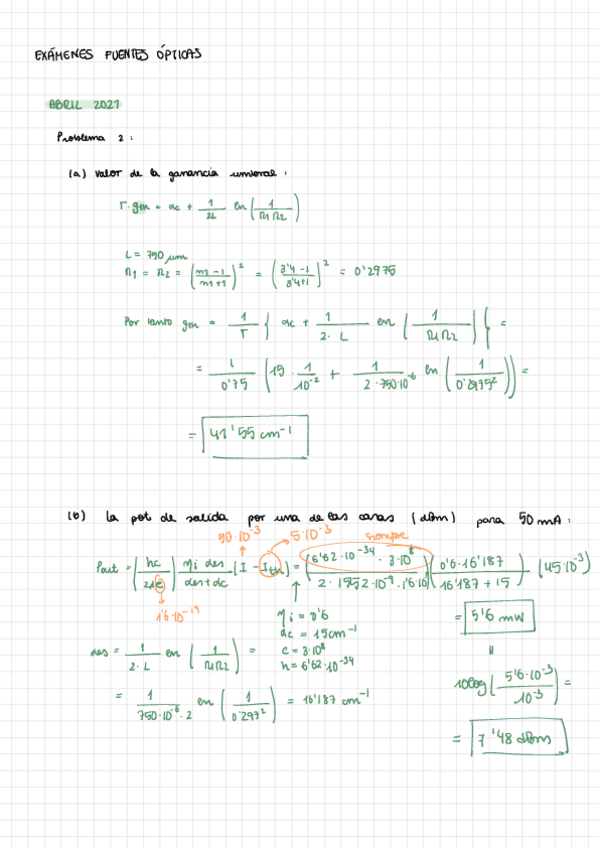 EXÁMENES FUENTES ÓPTICAS
ABRIL 2021
Problema 2:
(a) Valor de la ganancia umbral:
Γ·gth = αc + 1/2L ln(1/R1R2)
L = 750 μm
R1 = R2 = (m1-1/m1+1)^2 = (3'4-1/3'4+1)^2 = 0'2975
Por tanto gth = 1/Γ { αc + 1/2·L ln(1/R1R2) } =
= 1/0'75 (15·1/10^-2 + 1/2·750·10^-6 ln(1/0'2975^2)) =
= 41'55 cm^-1
(b) La pot de salida por una de las caras (dBm) para 50 mA:
50·10^-3 5·10^-3 siempre
Pout = (hc/2λe) ηi αes/αes+αc (I - Ith) = (6'62·10^-34·3·10^8/2·1552·10^-9·1'6·10) (0'6·16'187/16'187+15) (45·10^-3)
1'6·10^-19
ηi = 0'6
αc = 15cm^-1
c = 3·10^8
h = 6'62·10^-34
= 5'6 mW
αes = 1/2·L ln(1/R1R2) =
= 1/750·10^-6·2 ln(1/0'297^2) = 16'187 cm^-1
10log(5'6·10^-3/10^-3) =
= 7'48 dBm